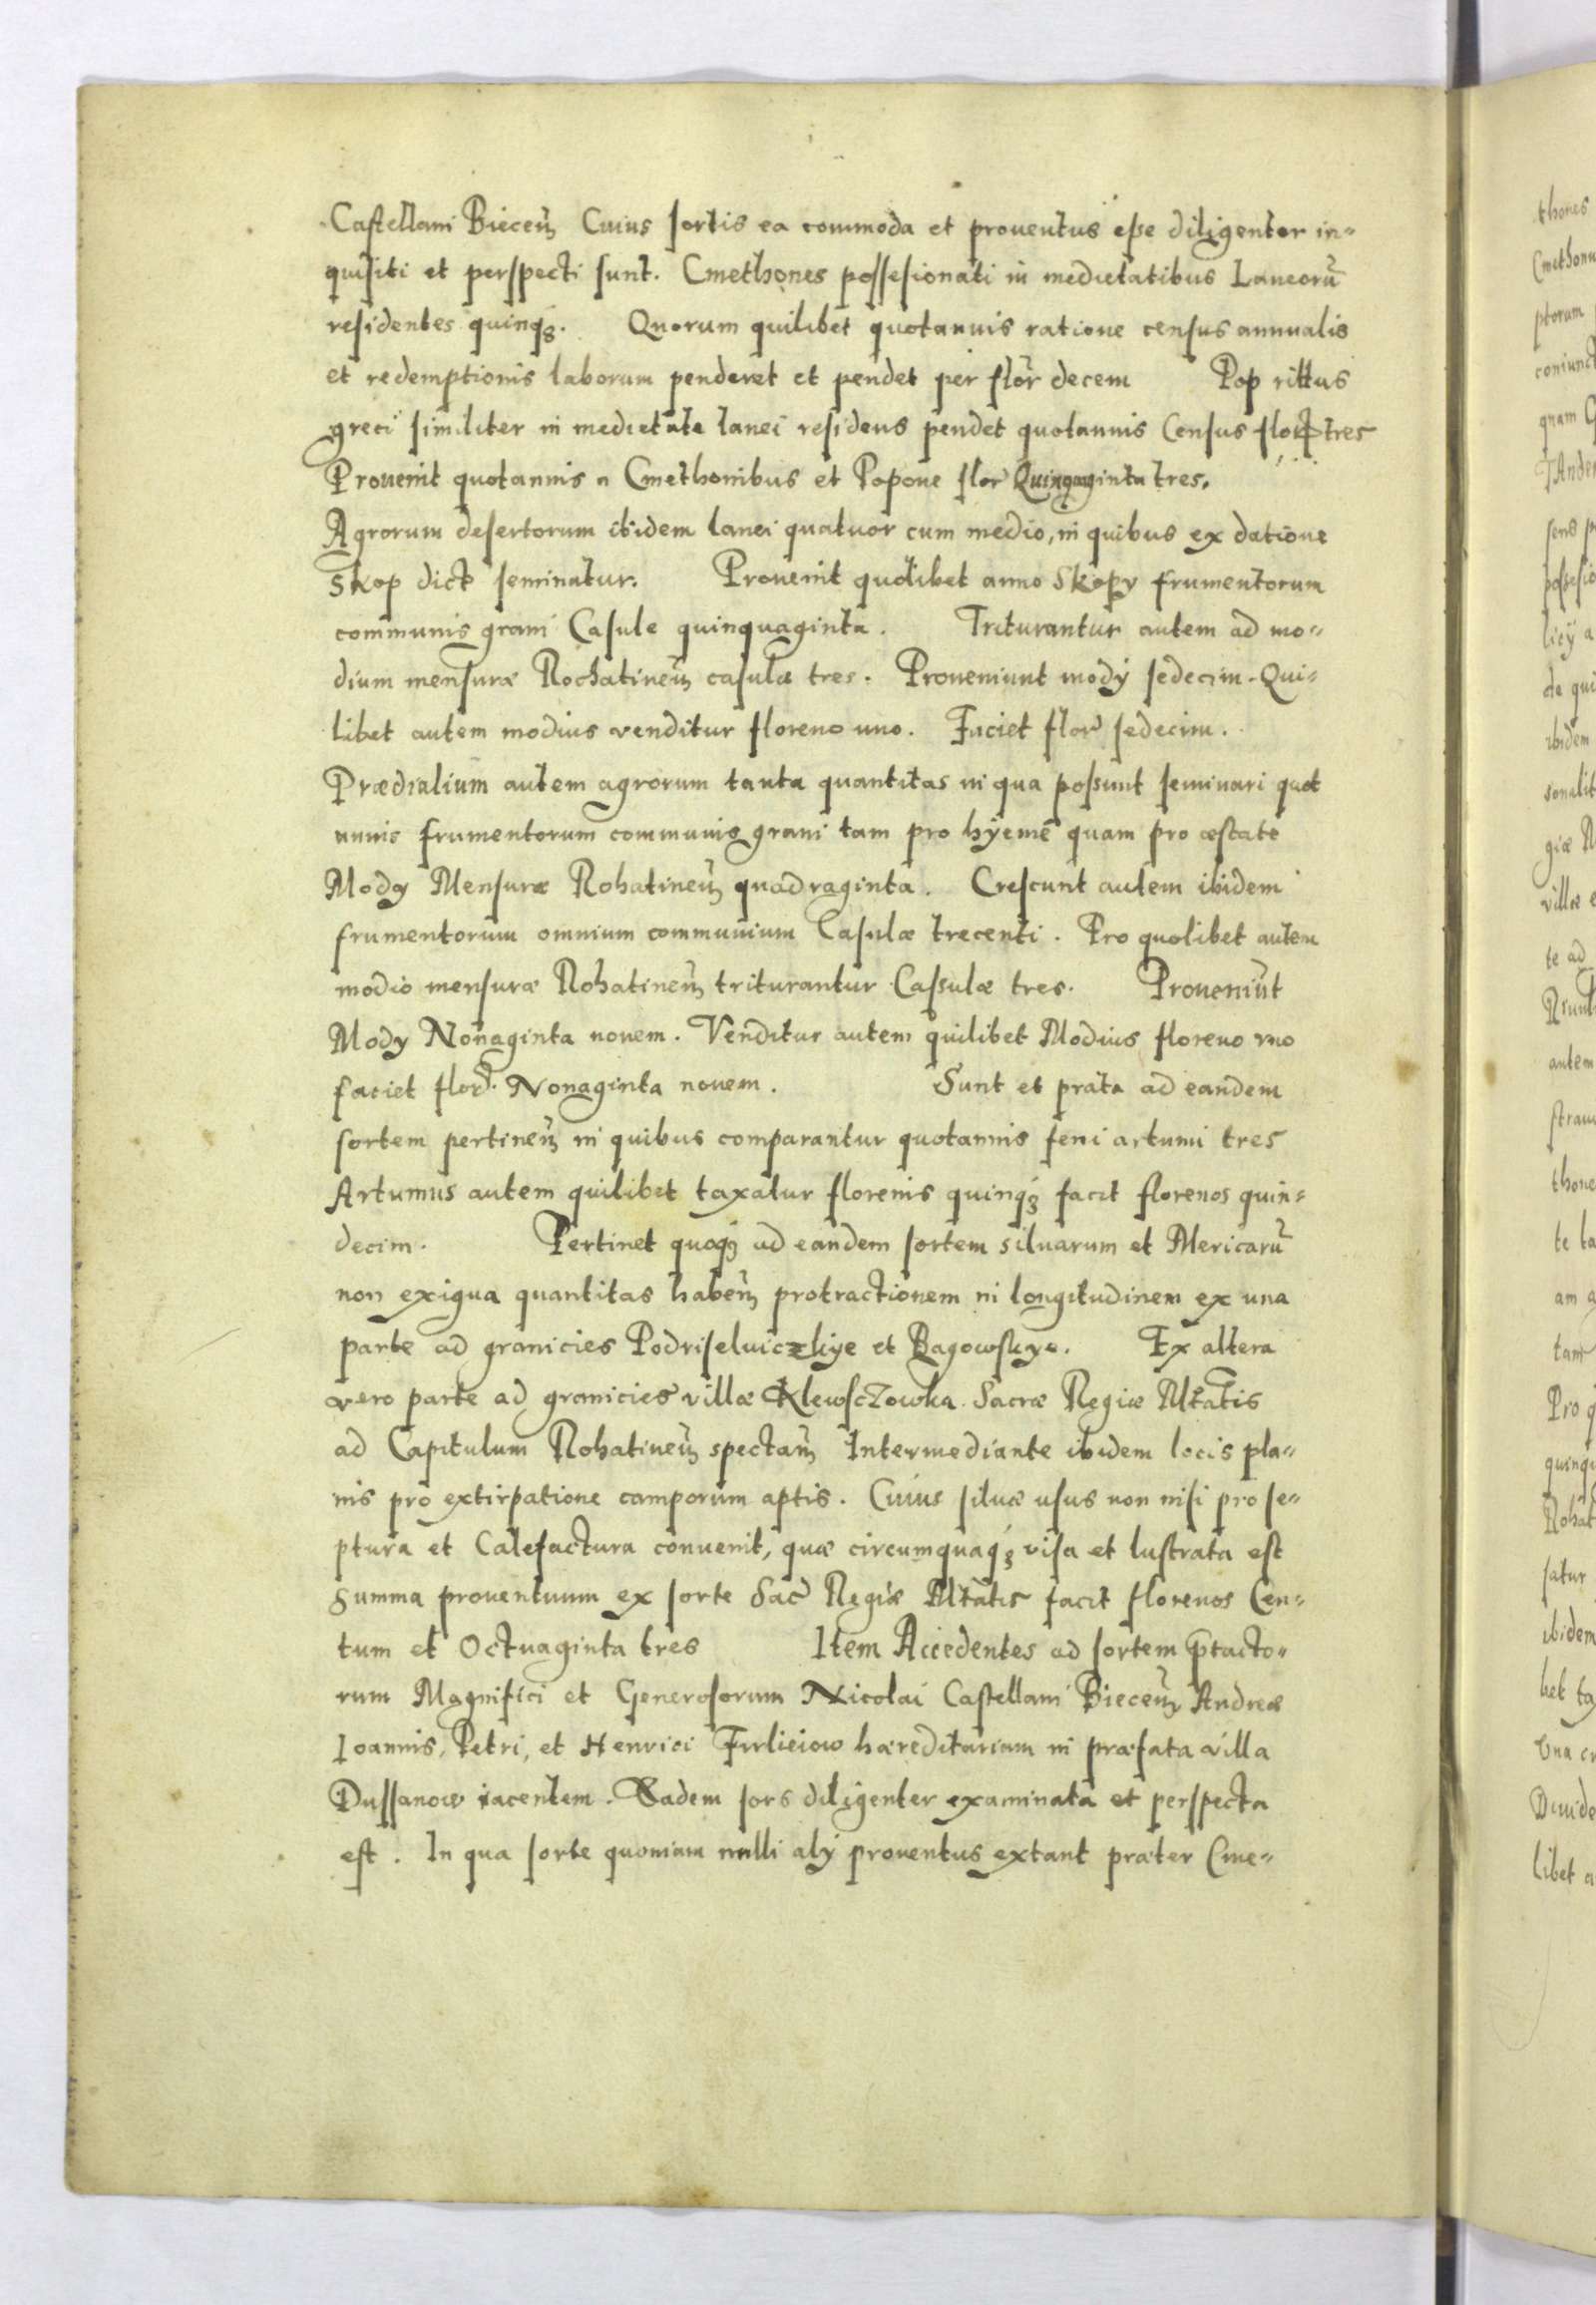 Castellani Bieceñ Cuius sortis ea commoda et prouentus esse diligenter in=
quisiti et perspecti sunt. Cmethones possesionati in medietatibus Laneorū
residentes quinqȝ. Quorum quilibet quotannis ratione census annualis
et redemptionis laborum penderet et pendet per flor̃ decem Pop rittus
greci similiter in medietate lanei residens pendet quotannis Census flor̃ tres
Prouenit quotannis a Cmethonibus et Popone flor̃ Quinquaginta tres.
Agrorum desertorum ibidem lanei quatuor cum medio, in quibus ex datione
Skop dict seminatur. Prouenit quolibet anno Skopy frumentorum
communis grani Casule quinquaginta. Triturantur autem ad mo=
dium mensuræ Rochatineñ casulæ tres. Proueniunt modÿ sedecim. Qui=
libet autem modius venditur floreno uno. Faciet flor̃ sedecim.
Prædialium autem agrorum tanta quantitas in qua possunt seminari quot
annis frumentorum communis grani tam pro hÿeme quam pro æstate
Mody Mensuræ Rohatineñ quadraginta. Crescunt autem ibidem
frumentorum omnium communium Casulæ trecenti. Pro quolibet autem
modio mensuræ Rohatineñ triturantur Cassulæ tres. Proueniūt
Mody Nonaginta nouem. Venditur autem quilibet Modius floreno vno
faciet flor̃. Nonaginta nouem. Sunt et prata ad eandem
sortem pertineñ in quibus comparantur quotannis feni artumi tres
Artumus autem quilibet taxatur florenis quinqȝ facit florenos quin=
decim. Pertinet quoqȝ ad eandem sortem siluarum et Mericarū
non exigua quantitas habeñ protractionem in longitudinem ex una
parte ad granicies Podriseluiczkye et Bagowskye. Ex altera
vero parte ad granicies villæ Klewsczowka Sacræ Regiæ Mtatis
ad Capitulum Rohatineñ spectañ Intermediante ibidem locis pla=
nis pro extirpatione camporum aptis. Cuius siluæ usus non nisi pro se=
ptura et Calefactura conuenit, quæ circumquaqȝ visa et lustrata est
Summa prouentuum ex sorte Sac̃ Regiæ Mtatis facit florenos Cen=
tum et Octuaginta tres Item Accedentes ad sortem p̄tacto=
rum Magnifici et Generosorum Nicolai Castellani Bieceñ Andreæ
Ioannis, Petri, et Henrici Firlieiow hæreditariam in præfata villa
Dussanow iacentem. Eadem sors diligenter examinata et perspecta
est. In qua sorte quoniam nulli alÿ prouentus extant præter Cme=